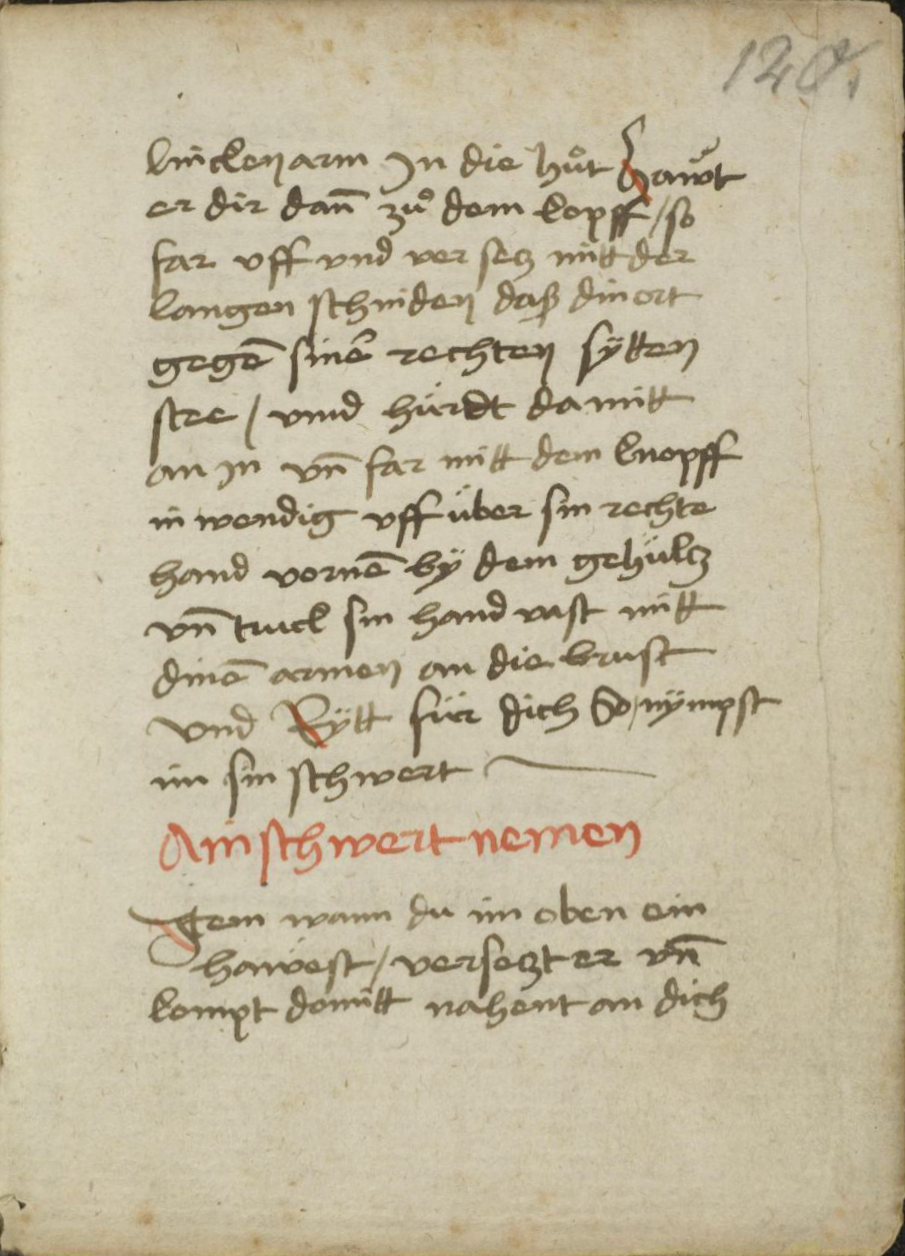 120.
lincken arm In die hůt Hawt
er dir dan̄ zů dem kopff / so
far vff vnd ver setz mitt der
langen schniden das din ort
gegen̄ sinē rechten sÿtten
stee / vnnd hürdt da mitt
an In vn̄ far mitt dem knopff
in wendig vff über sin rechte
hand vornē bÿ dem gehültz
vn̄ truck sin hand vast mitt
dinē armen an die brust
vnd Rÿtt für dich So nÿmpst
im sin schwert
Ain schwert nemen
Item wann du im oben ein
hawest / versetzt er vn̄
kompt domitt nahent an dich